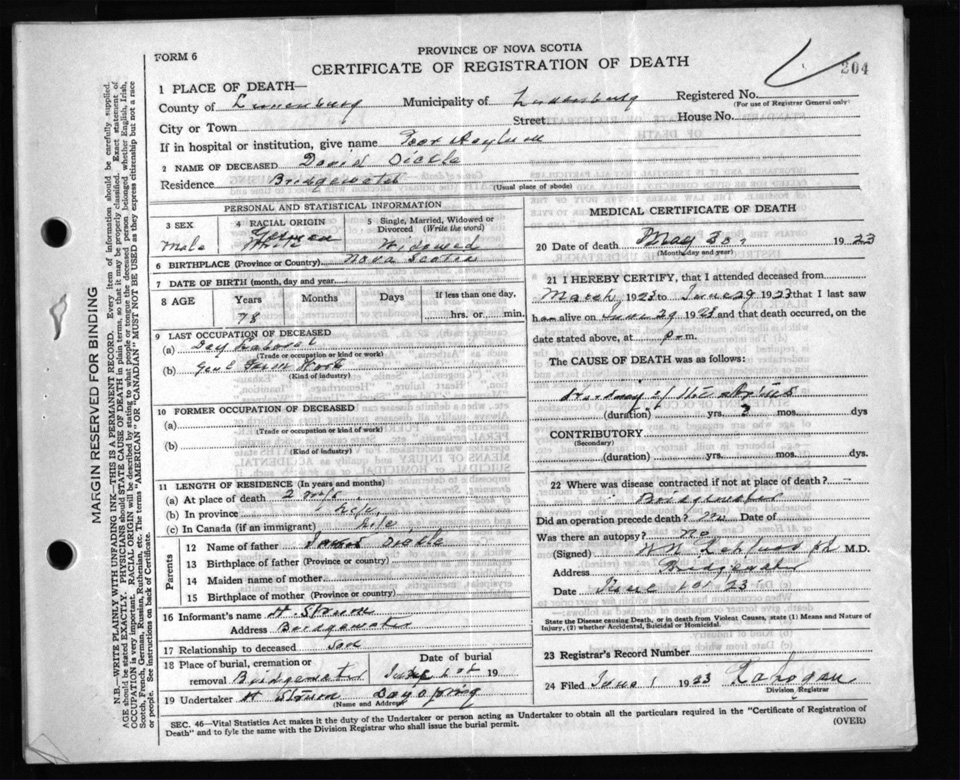 FORM 6
PROVINCE OF NOVA SCOTIA
CERTIFICATE OF REGISTRATION OF DEATH
204
1 PLACE OF DEATH—
County of Lunenburg Municipality of Lunenburg Registered No.
(For use of Registrar General only)
City or Town Street House No.
If in hospital or institution, give name Poor Asylum
2 NAME OF DECEASED David Dickle
Residence Bridgewater
(Usual place of abode)
PERSONAL AND STATISTICAL INFORMATION
3 SEX 4 RACIAL ORIGIN 5 Single, Married, Widowed or Divorced (Write the word)
Male German Widowed
6 BIRTHPLACE (Province or Country) Nova Scotia
7 DATE OF BIRTH (month, day and year)
8 AGE Years Months Days If less than one day,
78 hrs. or min.
9 LAST OCCUPATION OF DECEASED
(a) Day Laborer
(Trade or occupation or kind or work)
(b) Genl Farm Work
(Kind of industry)
10 FORMER OCCUPATION OF DECEASED
(a)
(Trade or occupation or kind of work)
(b)
(Kind of industry)
11 LENGTH OF RESIDENCE (In years and months)
(a) At place of death 2
(b) In province Life
(c) In Canada (if an immigrant) Life
Parents
12 Name of father Dickle
13 Birthplace of father (Province or country)
14 Maiden name of mother
15 Birthplace of mother (Province or country)
16 Informant's name H.
Address Bridgewater
17 Relationship to deceased
18 Place of burial, cremation or removal Bridgewater Date of burial June 19
19 Undertaker H
(Name and Address)
MEDICAL CERTIFICATE OF DEATH
20 Date of death May 1923
(Month, day and year)
21 I HEREBY CERTIFY, that I attended deceased from
March 1923 to June 29 1923 that I last saw
h alive on 29 1923 and that death occurred, on the
date stated above, at P. m.
The CAUSE OF DEATH was as follows:
(duration) yrs. mos. dys
CONTRIBUTORY
(Secondary)
(duration) yrs. mos. dys
22 Where was disease contracted if not at place of death?
Bridgewater
Did an operation precede death? No Date of
Was there an autopsy? No
(Signed) M.D.
Address Bridgewater
Date June 1st 23
State the Disease causing Death, or in death from Violent Causes, state (1) Means and Nature of Injury, (2) whether Accidental, Suicidal or Homicidal.
23 Registrar's Record Number
24 Filed June 1 1923
Division Registrar
SEC. 46—Vital Statistics Act makes it the duty of the Undertaker or person acting as Undertaker to obtain all the particulars required in the "Certificate of Registration of
Death" and to fyle the same with the Division Registrar who shall issue the burial permit. (OVER)
MARGIN RESERVED FOR BINDING
N.B.—WRITE PLAINLY WITH UNFADING INK—THIS IS A PERMANENT RECORD. Every item of information should be carefully supplied.
AGE should be stated EXACTLY. PHYSICIANS should STATE CAUSE OF DEATH in plain terms, so that it may be properly classified. Exact statement of
OCCUPATION is very important. RACIAL ORIGIN will be described by stating to what people or tongue the deceased person belonged whether English, Irish,
Scotch, French, German, Russian, Ruthenian, etc. The terms "AMERICAN" or "CANADIAN" MUST NOT BE USED as they express citizenship but not a race
or people. See instructions on back of Certificate.